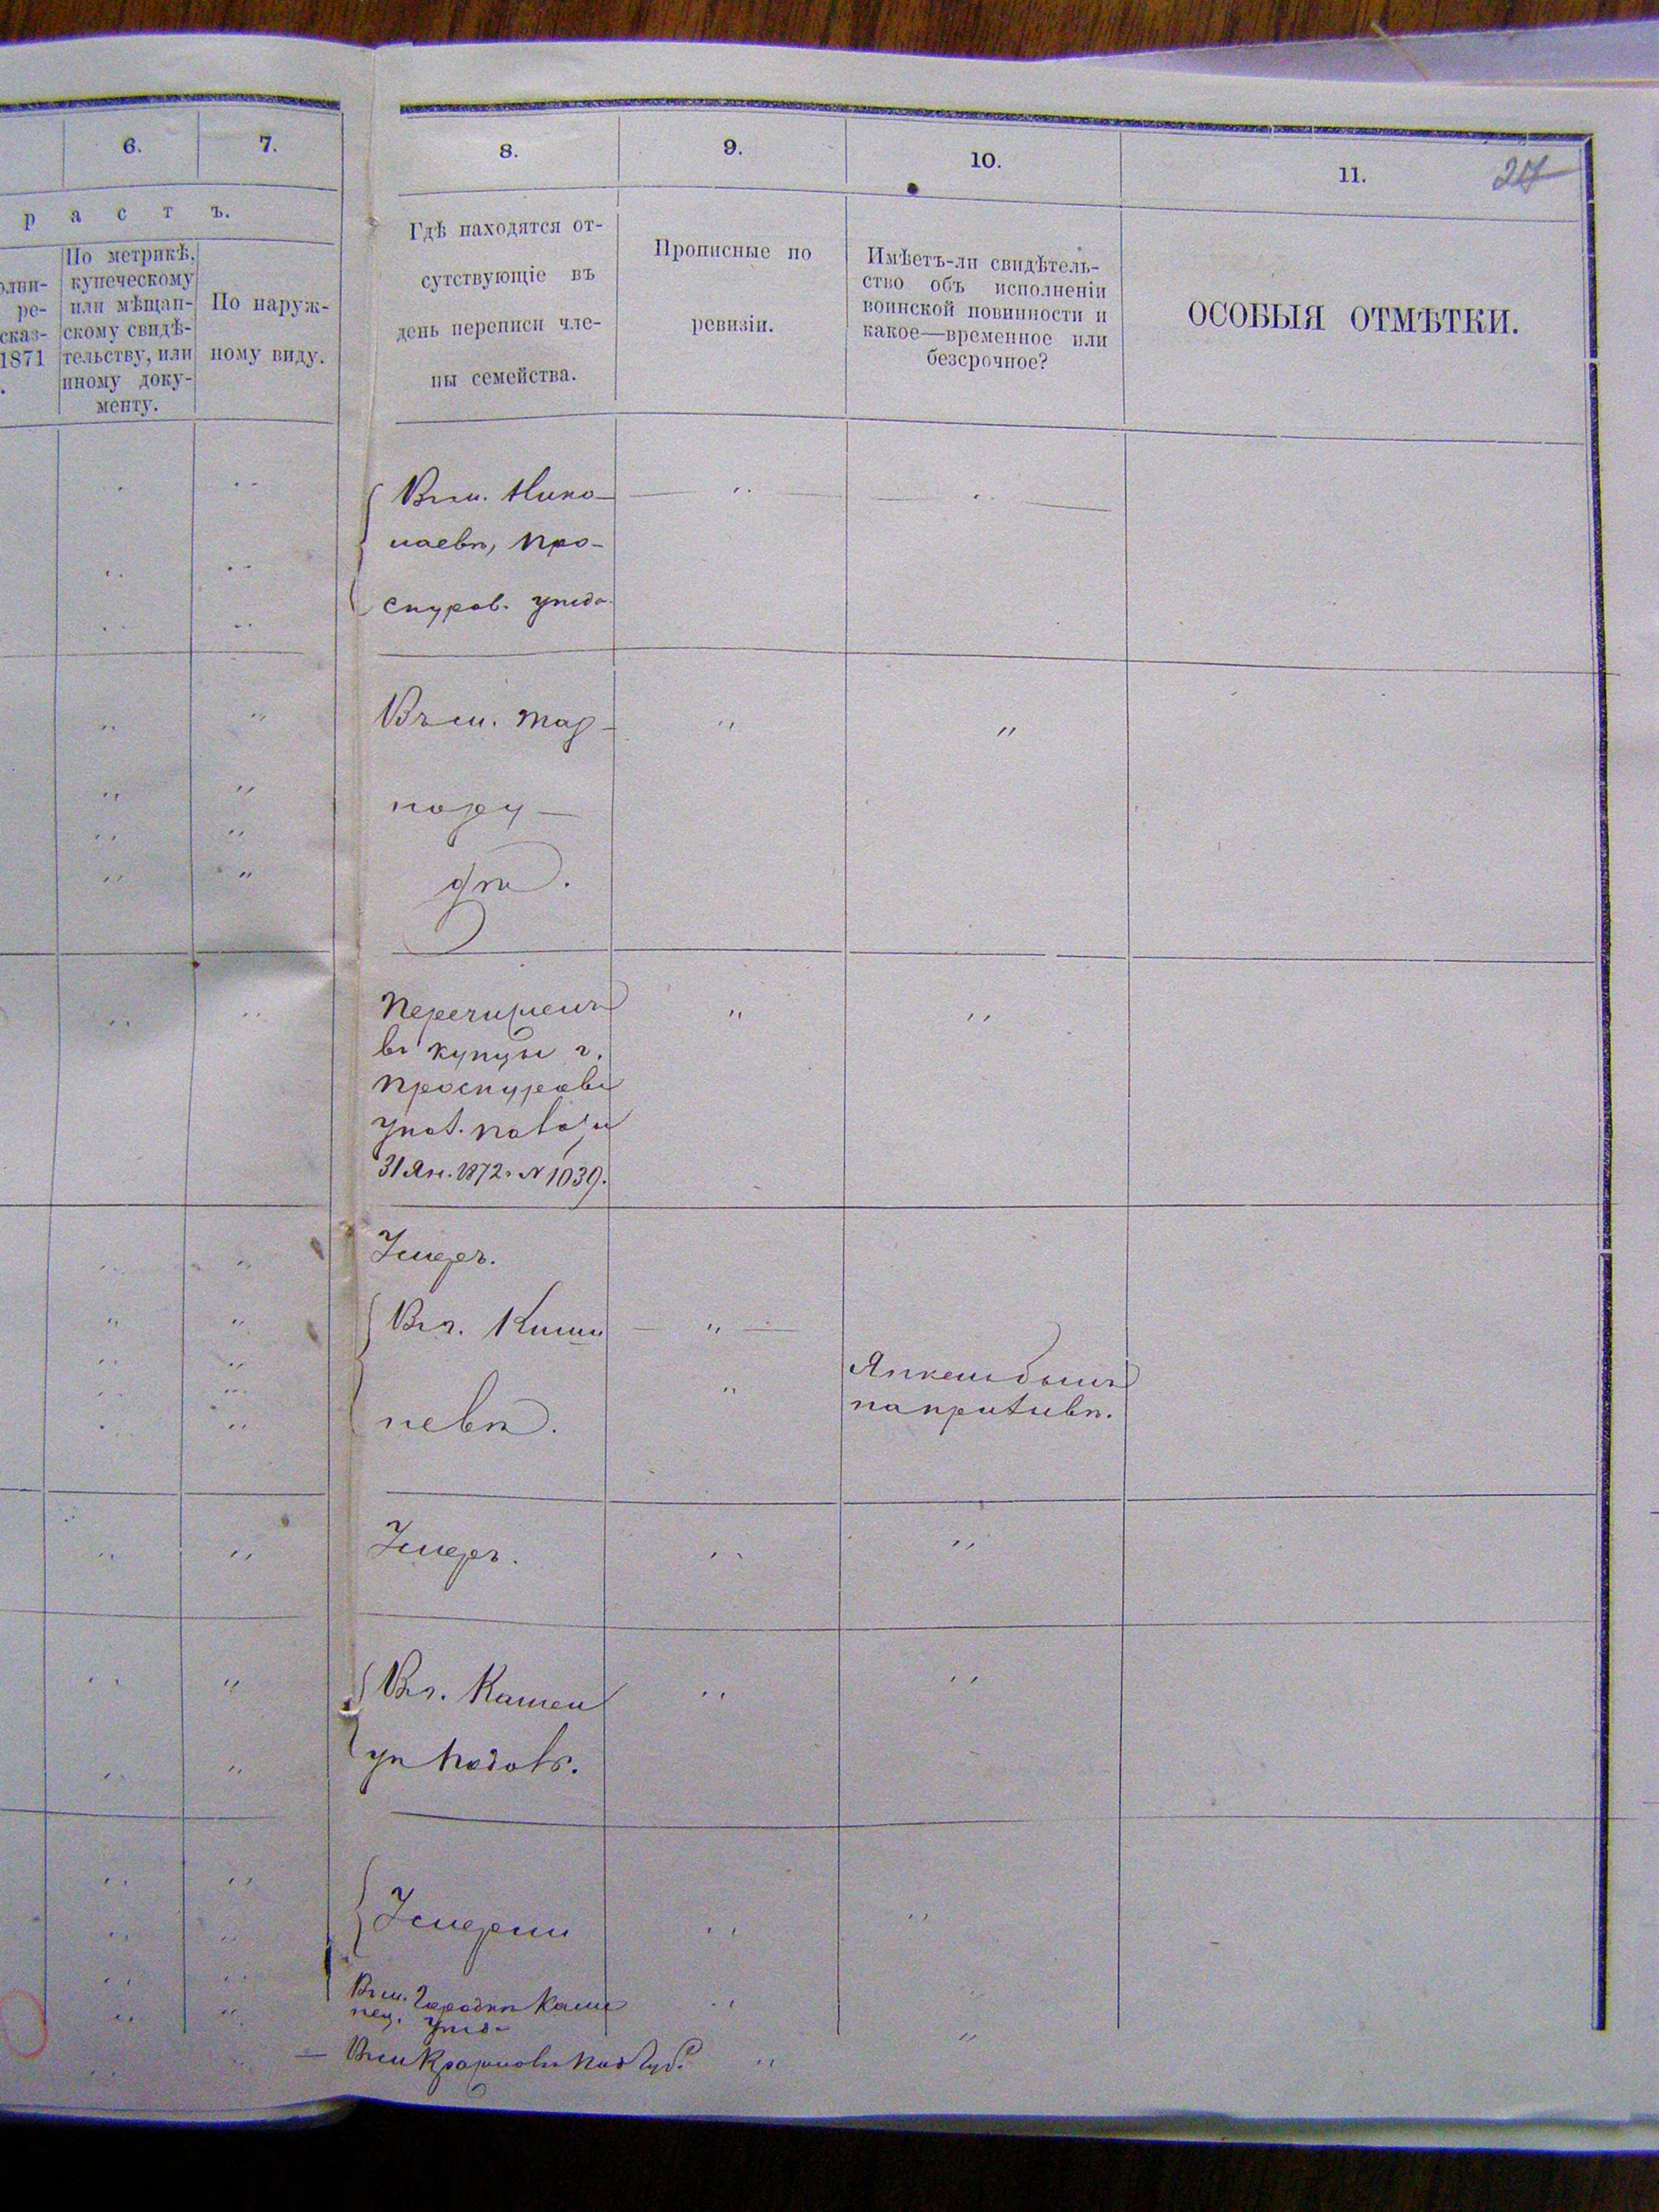 6.
7.
8.
9.
10.
11.
27
р а с т ъ.
олни-
ре-
сказ-
1871
По метрикѣ,
купеческому
или мѣщан-
скому свидѣ-
тельству, или
иному доку-
менту.
По наруж-
ному виду.
Гдѣ находятся от-
сутствующіе въ
день переписи чле-
ны семейства.
Прописные по
ревизіи.
Имѣетъ-ли свидѣтель-
ство объ исполненіи
воинской повинности и
какое—временное или
безсрочное?
ОСОБЫЯ ОТМѢТКИ.
Въ м. Нико-
лаевѣ, Про-
скуров. уѣзда
Въ м. Тар-
нору-
дѣ.
Перечисленъ
въ купцы г.
Проскурова
31 Ян. 1872 г. № 1039.
Умеръ.
Въ г. Киши
невѣ.
напротивъ.
Умеръ.
Въ г. Камен
цѣ Подольс.
Умерли
Въ м. Городкѣ Каме
нец. уѣзд.
Въ м. Под Губ.